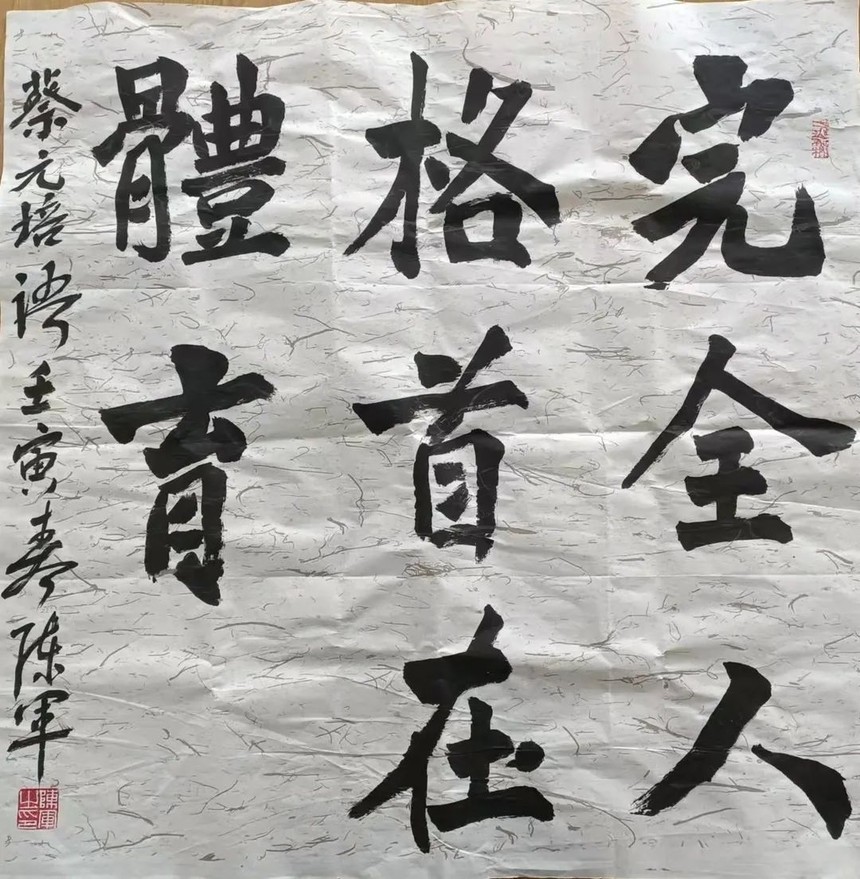 完全人
格首在
體育
蔡元培語壬寅春陈军
陳軍之印